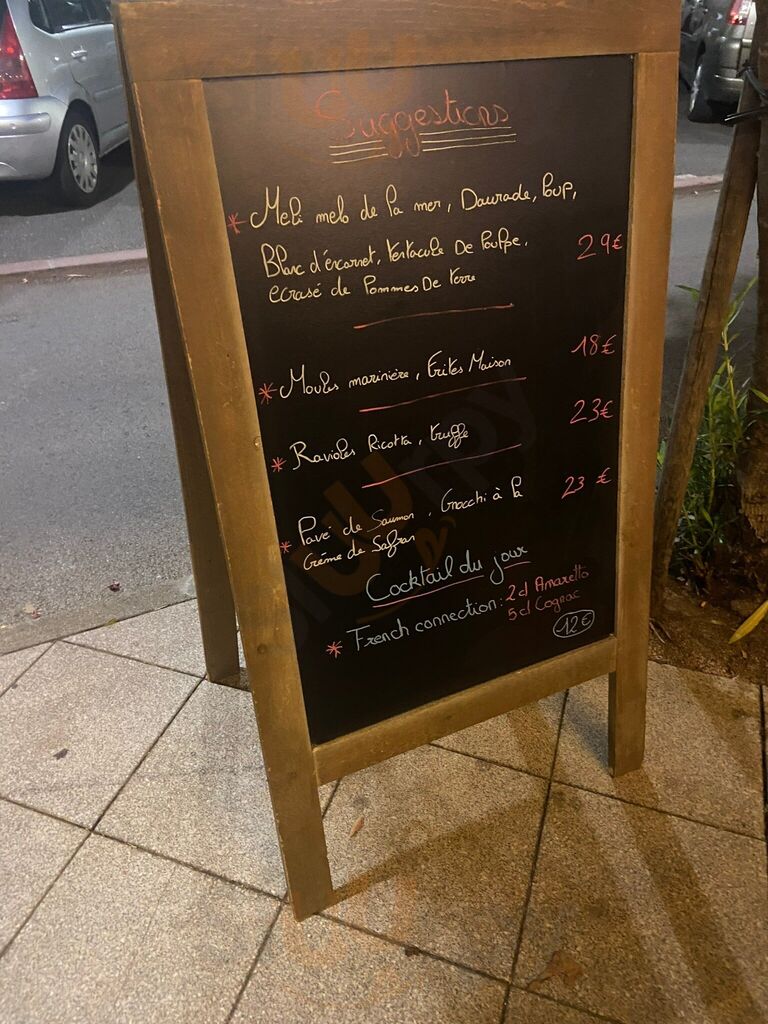 Suggestions
* Meli melo de la mer, Daurade, loup,
Blanc d'encornet, tentacule De Poulpe,
écrasé de Pommes De terre
29€
* Moules marinière, Frites Maison
18€
* Ravioles Ricotta, truffe
23€
* Pavé de Saumon, Gnocchi à la
Crème de Safran
23 €
Cocktail du jour
* French connection: 2 cl Amaretto
5 cl Cognac
12€